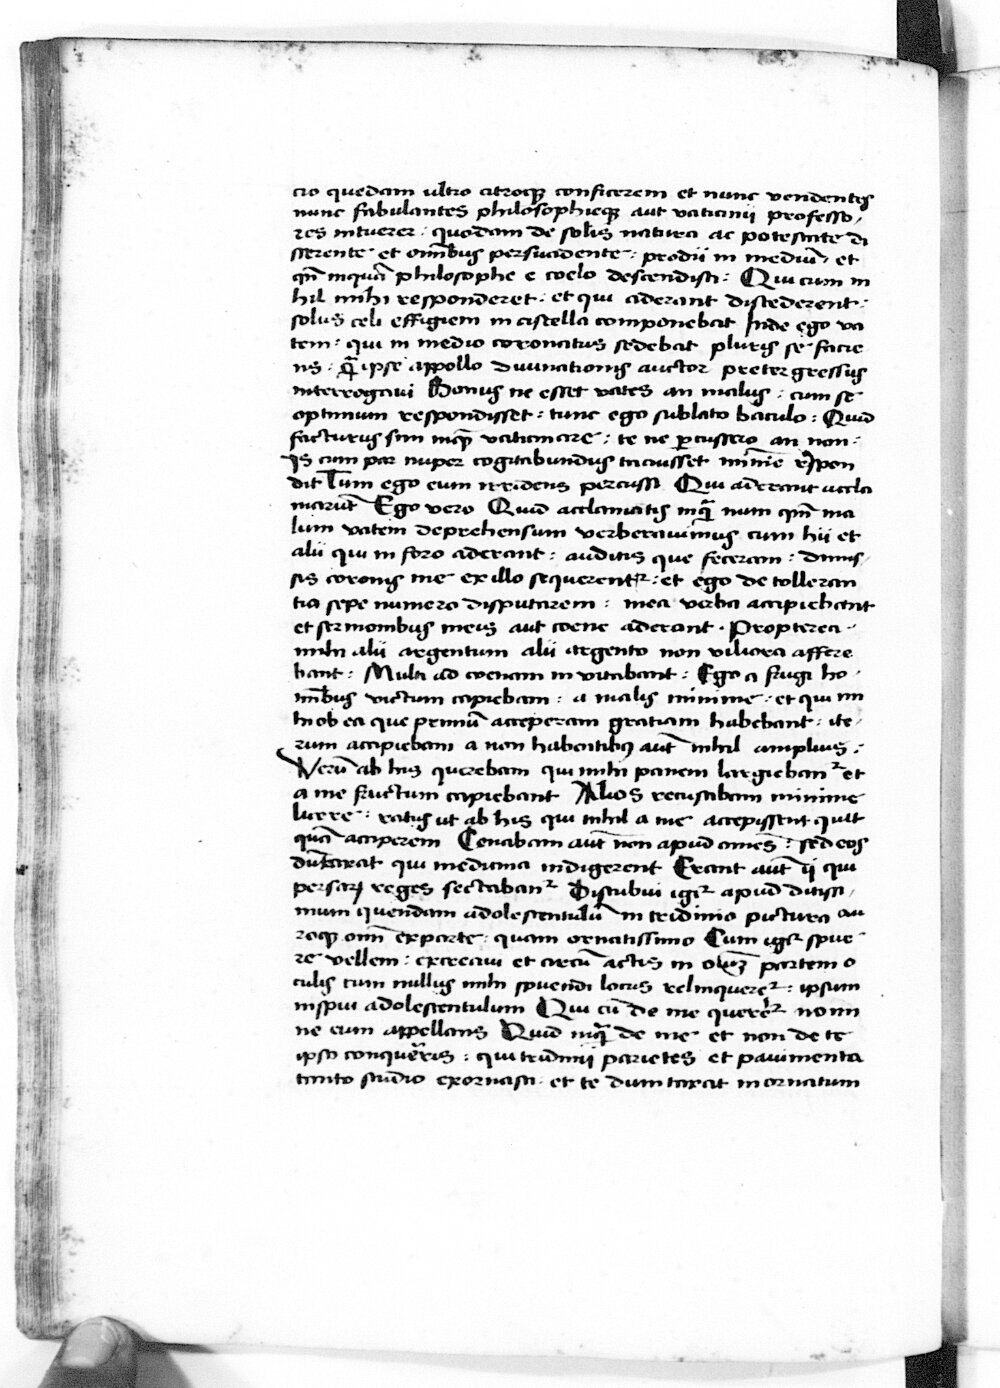 cio quedam ultro citroqȝ conficerem et nunc vendentes
nunc fabulantes philosophieqȝ aut vaticinii professo/
res intuerer : quodam de solis natura ac potestate di
sserente et omībus persuadente : prodii in mediū et
qn̄ inquā philosophe e coelo descendisti : Qui cum ni
hil mihi responderet : et qui aderant discederent :
solus celi effigiem in cistella componebat Inde ego va
tem : qui in medio coronatus sedebat pluris se facie
ns : q̄ ipse appollo divinationis auctor preter gressus
interrogavi Bonus ne esset vates an malus : cum se
optimum respondisset : tunc ego sublato baculo : Quid
facturus sim inqȝ vaticinare : te ne ꝑcussero an non :
Is cum par nuper cogitabundus tacuisset minīe respon
dit Tum ego eum irridens percussi Qui aderant accla
marūt Ego vero Quid acclamatis inquā num qm̄ ma
lum vatem deprehensum verberavimus cum hii et
alii qui in foro aderant : auditis que feceram : dimis/
sis coronis me ex illo sequerentʳ : et ego de tolleran
tia sepe numero disputarem : mea verba accipiebant
et sermonibus meis aut coene aderant . Propterea .
mihi alii argentum alii argento non viliora affere
bant : Multi ad coenam invitabant : Ego a frugi ho.
mībus victum capiebam : a malis minime : et qui mi
hi ob ea que primū acceperam gratiam habebant : ite/
rum accipiebam a non habentibȝ aūt nihil amplius :
Verū ab his querebam qui mihi panem largiebanʳ et
a me fructum capiebant Alios recusabam minime
lucre : ratus ut ab his qui nihil a me accepissent quic
quā acciperem Cenabam aūt non apud omēs : sed eos
dūtaxat qui medicina indigerent Erant aūt ij qui
persarȝ reges sectabanʳ Discubui igiʳ apud ditissi/
mum quendam adolescentulū in triclinio pictura au
roqȝ omī ex parte : quam ornatissimo Cum igiʳ spue
re vellem : excreavi et circū actis in oīm partem o
culis cum nullus mihi spuendi locus relinquereʳ : ipsum
inspui adolescentulum Qui cū de me querereʳ nomi
ne eum appellans Quid inquā de me et non de te
ipso conqueris : qui triclinii parietes et pavimenta
tanto studio exornasti : et te dum taxat inornatum